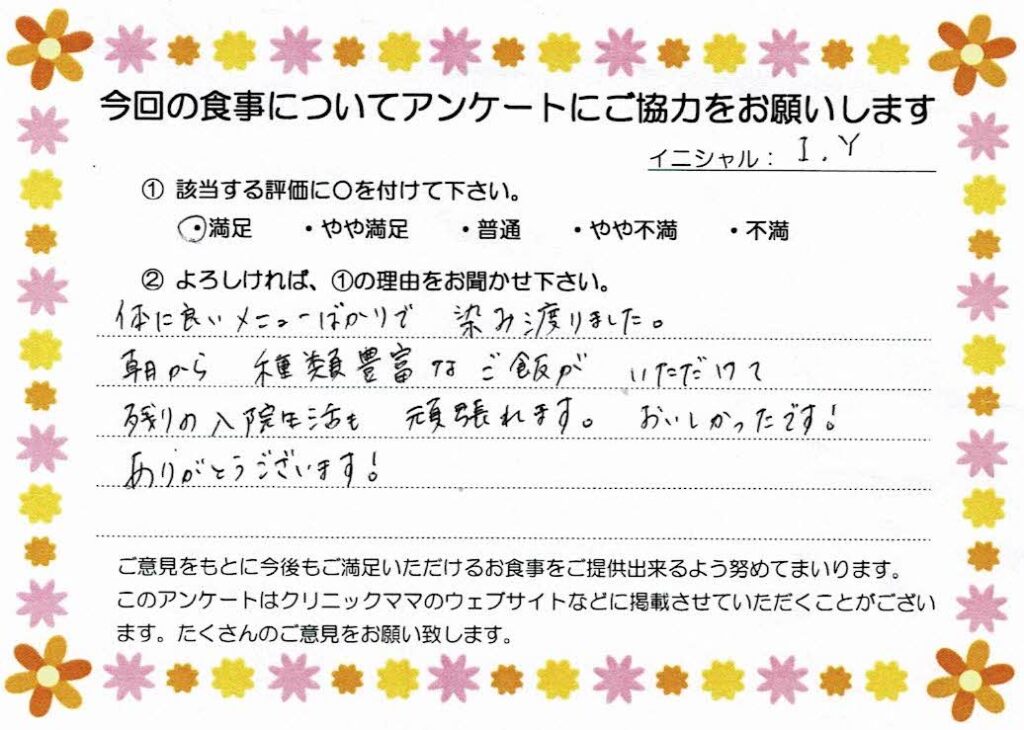 今回の食事についてアンケートにご協力をお願いします
イニシャル: I.Y
① 該当する評価に〇を付けて下さい。
・満足 ・やや満足 ・普通 ・やや不満 ・不満
② よろしければ、①の理由をお聞かせ下さい。
体に良いメニューばかりで 染み渡りました。
朝から 種類豊富なご飯が いただけて
残りの入院生活も 頑張れます。 おいしかったです!
ありがとうございます!
ご意見をもとに今後もご満足いただけるお食事をご提供出来るよう努めてまいります。
このアンケートはクリニックママのウェブサイトなどに掲載させていただくことがござい
ます。たくさんのご意見をお願い致します。